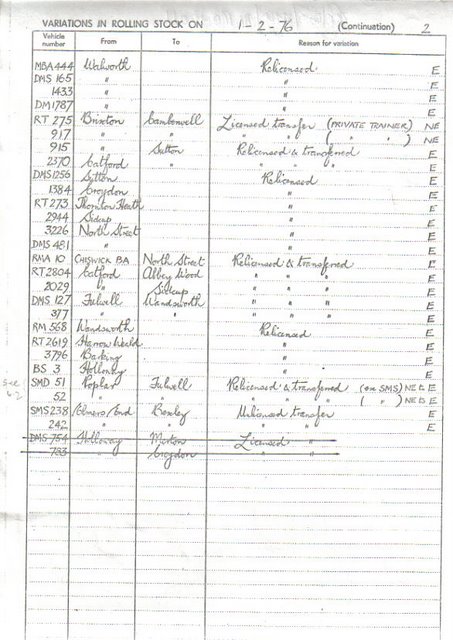 VARIATIONS IN ROLLING STOCK ON 1-2-76 (Continuation) 2
Vehicle number From To Reason for variation
MBA444 Walworth Relicensed E
DMS 165 " " E
1433 " " E
DM1787 " " E
RT 275 Brixton Camberwell Licensed transfer (PRIVATE TRAINER) NE
917 " " " " ( " " ) NE
915 " Sutton Relicensed & transferred E
2370 Catford " " " " E
DMS1256 Sutton Relicensed E
1384 Croydon " E
RT 273 Thornton Heath " E
2944 Sidcup " E
3226 North Street " E
DMS 481 " " E
RMA 10 CHISWICK BA North Street Relicensed & transferred E
RT2804 Catford Abbey Wood " " " E
2029 " Sidcup " " " E
DMS 127 Fulwell Wandsworth " " " E
377 " " " " " E
RM 568 Wandsworth Relicensed E
RT2619 Harrow Weald " E
3796 Barking " E
BS 3 Holloway " E
SMD 51 Poplar Fulwell Relicensed & transferred (on SMS) NE & E
52 " " " " " ( " ) NE & E
SMS238 Elmers End Bexley Unlicensed transfer E
242 " " " " E
DMS 754 Holloway Merton Licensed "
783 " Croydon " "